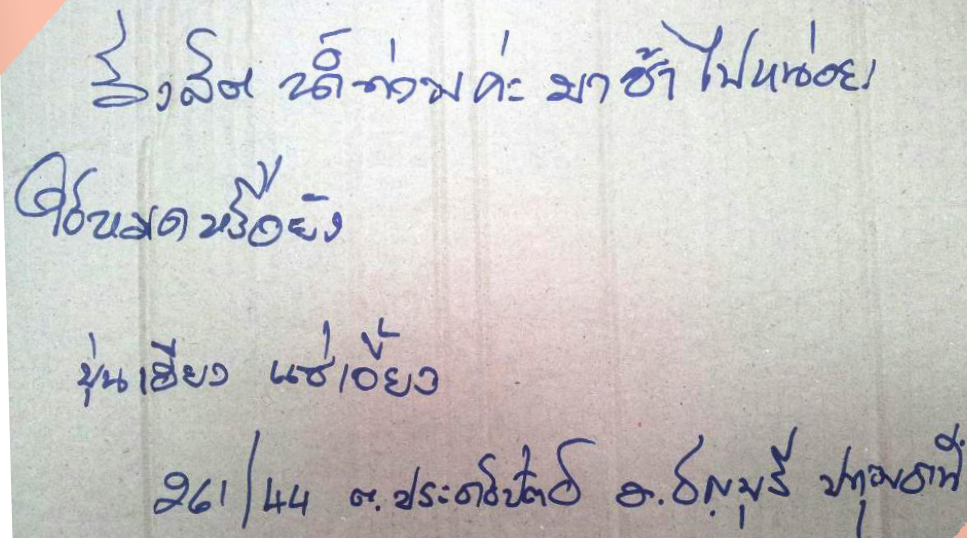 รังสิต น้ำท่วมค่ะ มาช้าไปหน่อย
ใช้หมดหรือยัง
ขุ่นเฮียง แซ่เอี้ยง
261/44 ต.ประชาธิปัตย์ อ.ธัญบุรี ปทุมธานี